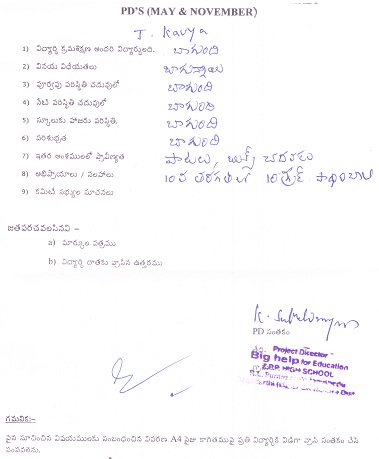 PD'S (MAY & NOVEMBER)
T. Kavya
1) విద్యార్థి క్రమశిక్షణ అందరి విద్యార్థులది. బాగుంది
2) వినయ విధేయతలు బాగున్నాయి
3) పూర్వపు పరిస్థితి చదువులో బాగుంది
4) నేటి పరిస్థితి చదువులో బాగుంది
5) స్కూలుకు హాజరు పరిస్థితి. బాగుంది
6) పరిశుభ్రత బాగుంది
7) ఇతర అంశములలో ప్రావీణ్యత పాటలు, బుక్స్ చదవడం
8) అభిప్రాయాలు / సలహాలు 10వ తరగతిలో 10
9) కమిటీ సభ్యుల సూచనలు
జతపరచవలసినవి :-
a) మార్కుల పత్రము
b) విద్యార్థి దాతకు వ్రాసిన ఉత్తరము
PD సంతకం
Project Director
Big help for Education
Z.P.P. HIGH SCHOOL
గమనిక:-
పైన సూచించిన విషయములకు సంబంధించిన వివరణ A4 సైజు కాగితముపై ప్రతి విద్యార్థికి విడిగా వ్రాసి సంతకం చేసి
పంపవలెను.